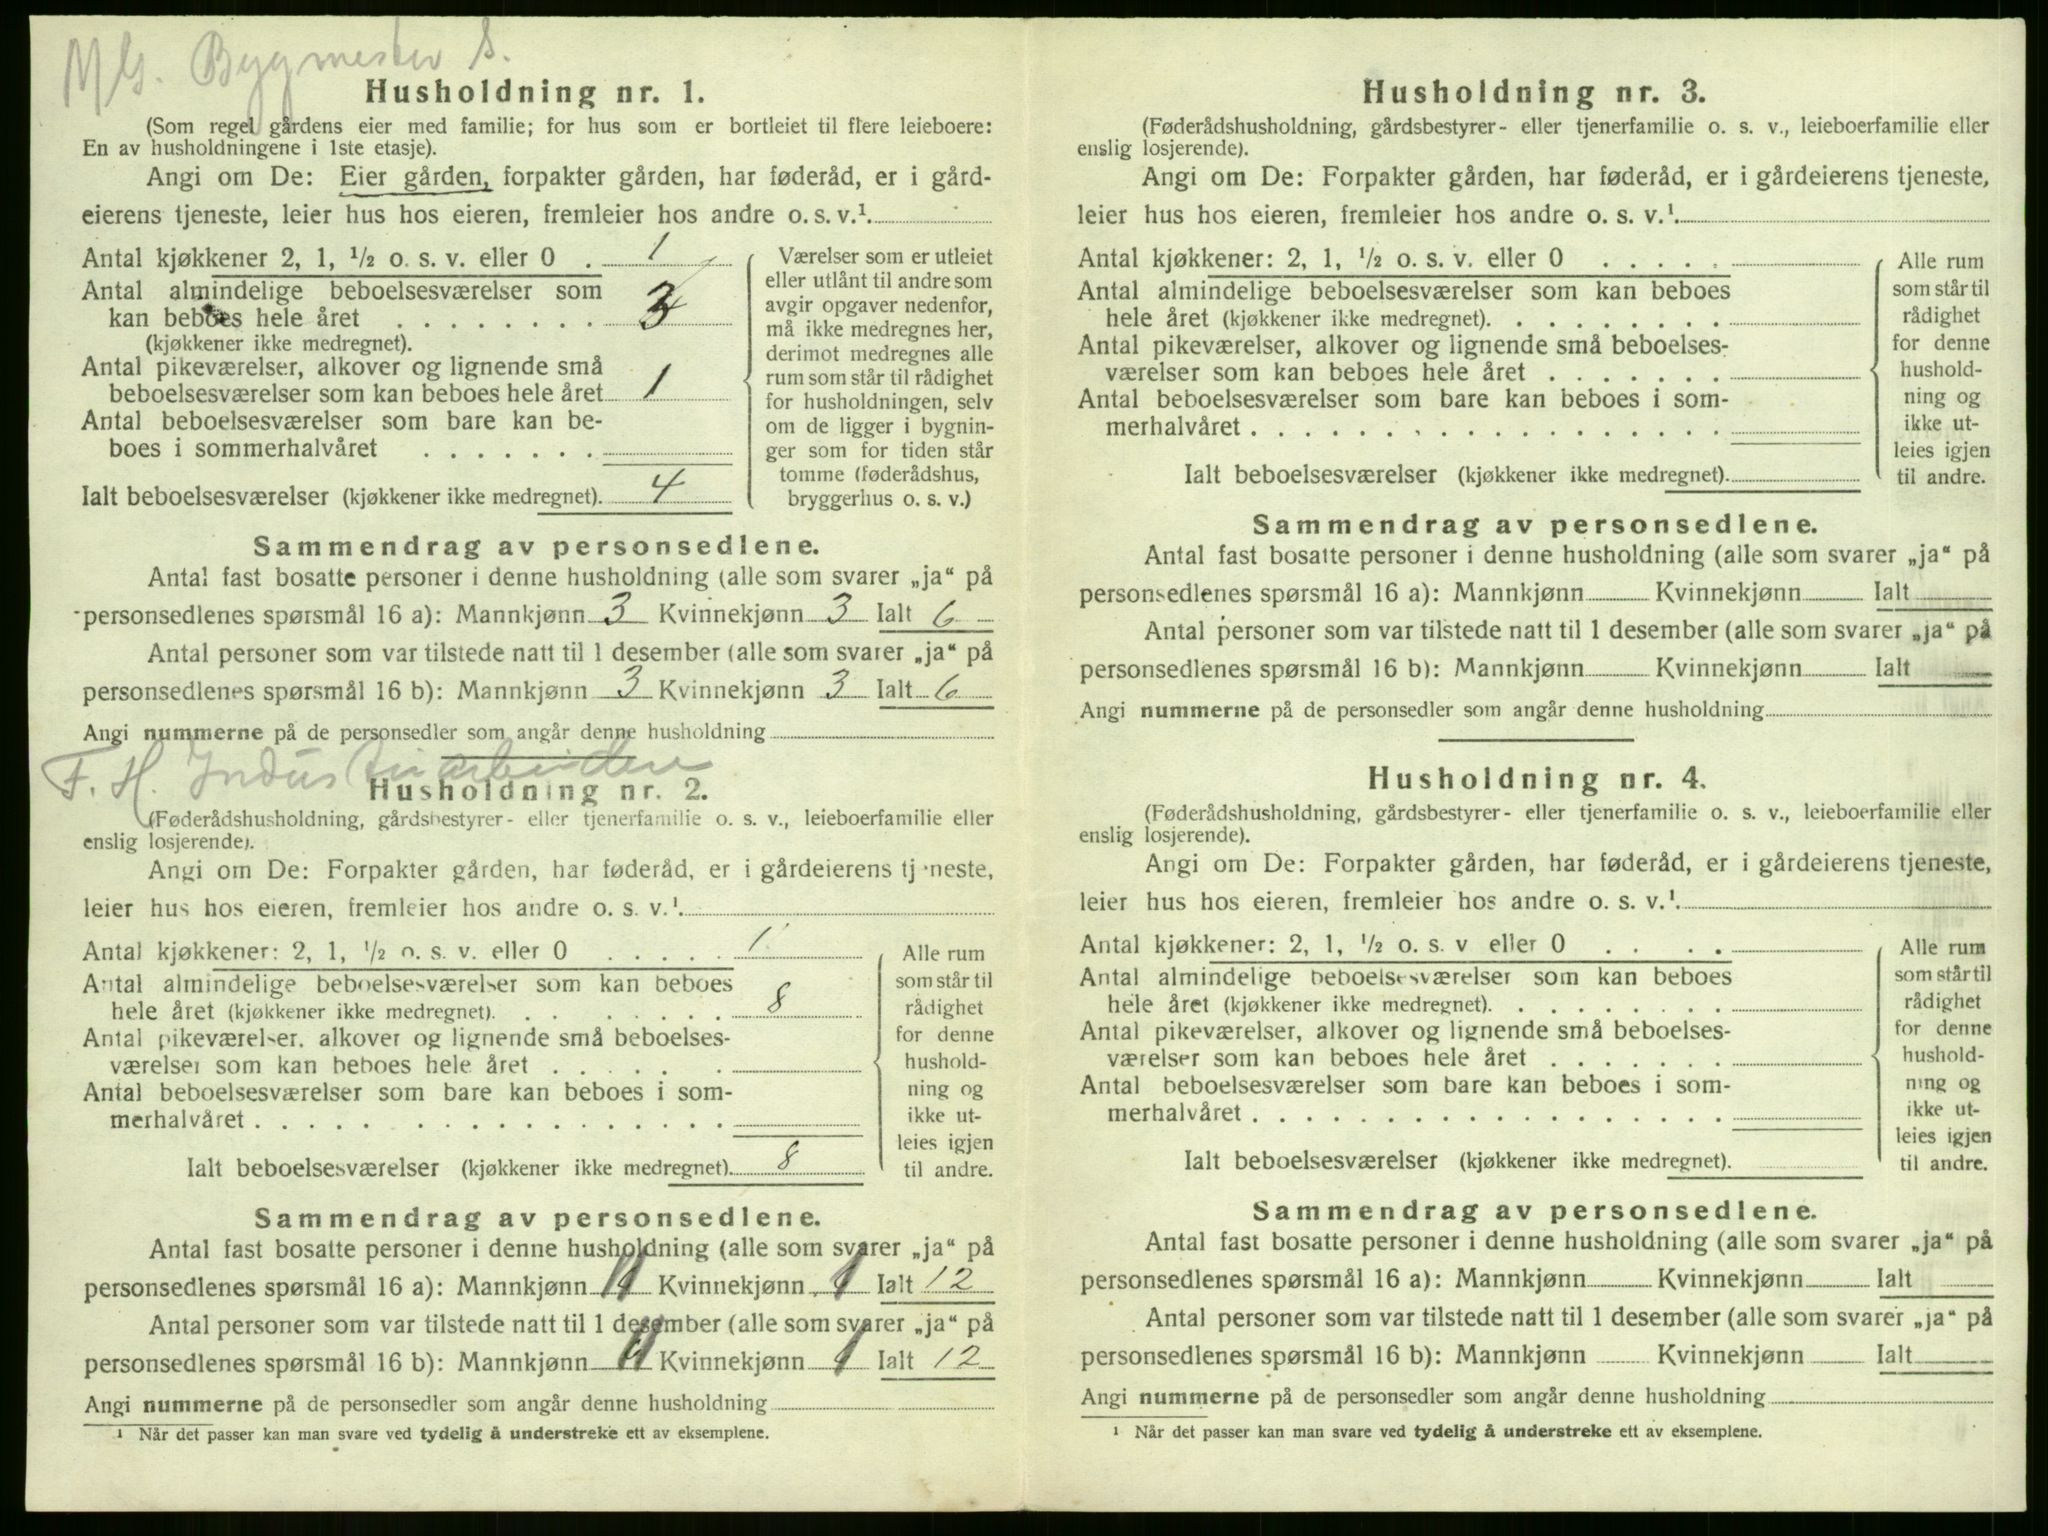 M G. Bygmester S.
Husholdning nr. 1.
(Som regel gårdens eier med familie; for hus som er bortleiet til flere leieboere:
En av husholdningene i 1ste etasje).
Angi om De: Eier gården, forpakter gården, har føderåd, er i gård-
eierens tjeneste, leier hus hos eieren, fremleier hos andre o. s. v.¹
Antal kjøkkener 2, 1, ½ o. s. v. eller 0 . 1
Antal almindelige beboelsesværelser som
kan beboes hele året . . . . . . . . 3
(kjøkkener ikke medregnet).
Antal pikeværelser, alkover og lignende små
beboelsesværelser som kan beboes hele året 1
Antal beboelsesværelser som bare kan be-
boes i sommerhalvåret . . . . . . .
Ialt beboelsesværelser (kjøkkener ikke medregnet). 4
Værelser som er utleiet
eller utlånt til andre som
avgir opgaver nedenfor,
må ikke medregnes her,
derimot medregnes alle
rum som står til rådighet
for husholdningen, selv
om de ligger i bygnin-
ger som for tiden står
tomme (føderådshus,
bryggerhus o. s. v.)
Sammendrag av personsedlene.
Antal fast bosatte personer i denne husholdning (alle som svarer „ja“ på
personsedlenes spørsmål 16 a): Mannkjønn 3 Kvinnekjønn 3 Ialt 6
Antal personer som var tilstede natt til 1 desember (alle som svarer „ja“ på
personsedlenes spørsmål 16 b): Mannkjønn 3 Kvinnekjønn 3 Ialt 6
Angi nummerne på de personsedler som angår denne husholdning
F. H. Industriarbeidere
Husholdning nr. 2.
(Føderådshusholdning, gårdsbestyrer- eller tjenerfamilie o. s. v., leieboerfamilie eller
enslig losjerende).
Angi om De: Forpakter gården, har føderåd, er i gårdeierens tjeneste,
leier hus hos eieren, fremleier hos andre o. s. v.¹
Antal kjøkkener: 2, 1, ½ o. s. v. eller 0 . . . . . 1
Antal almindelige beboelsesværelser som kan beboes
hele året (kjøkkener ikke medregnet). . . . . . . 8
Antal pikeværelser, alkover og lignende små beboelses-
værelser som kan beboes hele året . . . . . . .
Antal beboelsesværelser som bare kan beboes i som-
merhalvåret . . . . . . . . . . . . . . . .
Ialt beboelsesværelser (kjøkkener ikke medregnet). 8
Alle rum
som står til
rådighet
for denne
hushold-
ning og
ikke ut-
leies igjen
til andre.
Sammendrag av personsedlene.
Antal fast bosatte personer i denne husholdning (alle som svarer „ja“ på
personsedlenes spørsmål 16 a): Mannkjønn 11 Kvinnekjønn 1 Ialt 12
Antal personer som var tilstede natt til 1 desember (alle som svarer „ja“ på
personsedlenes spørsmål 16 b): Mannkjønn 11 Kvinnekjønn 1 Ialt 12
Angi nummerne på de personsedler som angår denne husholdning
¹ Når det passer kan man svare ved tydelig å understreke ett av eksemplene.
Husholdning nr. 3.
(Føderådshusholdning, gårdsbestyrer- eller tjenerfamilie o. s. v., leieboerfamilie eller
enslig losjerende).
Angi om De: Forpakter gården, har føderåd, er i gårdeierens tjeneste,
leier hus hos eieren, fremleier hos andre o. s. v.¹
Antal kjøkkener: 2, 1, ½ o. s. v. eller 0 . . . . .
Antal almindelige beboelsesværelser som kan beboes
hele året (kjøkkener ikke medregnet). . . . . . . .
Antal pikeværelser, alkover og lignende små beboelses-
værelser som kan beboes hele året . . . . . . .
Antal beboelsesværelser som bare kan beboes i som-
merhalvåret . . . . . . . . . . . . . . . . .
Ialt beboelsesværelser (kjøkkener ikke medregnet).
Alle rum
som står til
rådighet
for denne
hushold-
ning og
ikke ut-
leies igjen
til andre.
Sammendrag av personsedlene.
Antal fast bosatte personer i denne husholdning (alle som svarer „ja“ på
personsedlenes spørsmål 16 a): Mannkjønn Kvinnekjønn Ialt
Antal personer som var tilstede natt til 1 desember (alle som svarer „ja“ på
personsedlenes spørsmål 16 b): Mannkjønn Kvinnekjønn Ialt
Angi nummerne på de personsedler som angår denne husholdning
Husholdning nr. 4.
(Føderådshusholdning, gårdsbestyrer- eller tjenerfamilie o. s. v., leieboerfamilie eller
enslig losjerende).
Angi om De: Forpakter gården, har føderåd, er i gårdeierens tjeneste,
leier hus hos eieren, fremleier hos andre o. s. v.¹
Antal kjøkkener: 2, 1, ½ o. s. v eller 0 . . . .
Antal almindelige beboelsesværelser som kan beboes
hele året (kjøkkener ikke medregnet). . . . . . . .
Antal pikeværelser, alkover og lignende små beboelses-
værelser som kan beboes hele året . . . . . . .
Antal beboelsesværelser som bare kan beboes i som-
merhalvåret . . . . . . . . . . . . . . . . .
Ialt beboelsesværelser (kjøkkener ikke medregnet).
Alle rum
som står til
rådighet
for denne
hushold-
ning og
ikke ut-
leies igjen
til andre.
Sammendrag av personsedlene.
Antal fast bosatte personer i denne husholdning (alle som svarer „ja“ på
personsedlenes spørsmål 16 a): Mannkjønn Kvinnekjønn Ialt
Antal personer som var tilstede natt til 1 desember (alle som svarer „ja“ på
personsedlenes spørsmål 16 b): Mannkjønn Kvinnekjønn Ialt
Angi nummerne på de personsedler som angår denne husholdning
¹ Når det passer kan man svare ved tydelig å understreke ett av eksemplene.